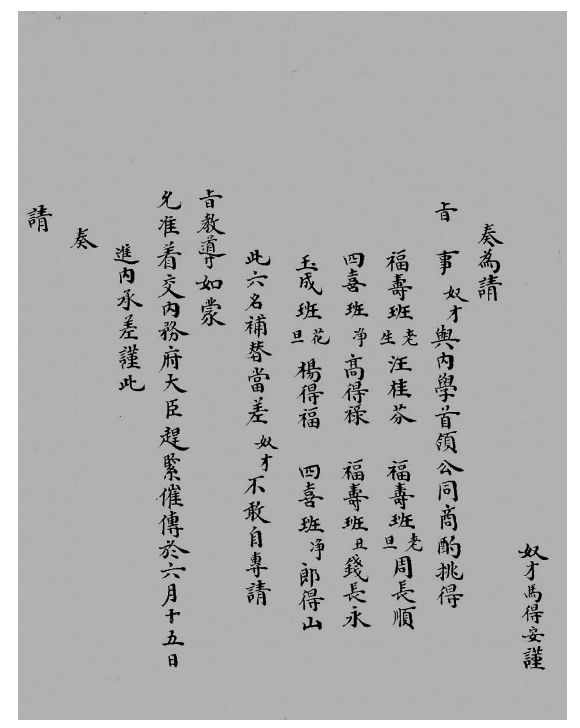 奴才馬得安謹
奏為請
旨事奴才與內學首領公同商酌挑得
福壽班老生汪桂芬　福壽班老旦周長順
四喜班净高得祿　福壽班丑錢長永
玉成班花旦楊得福　四喜班净郎得山
此六名補替當差奴才不敢自專請
旨教導如蒙
允准着交內務府大臣趕緊催傳於六月十五日
進內承差謹此
奏
請